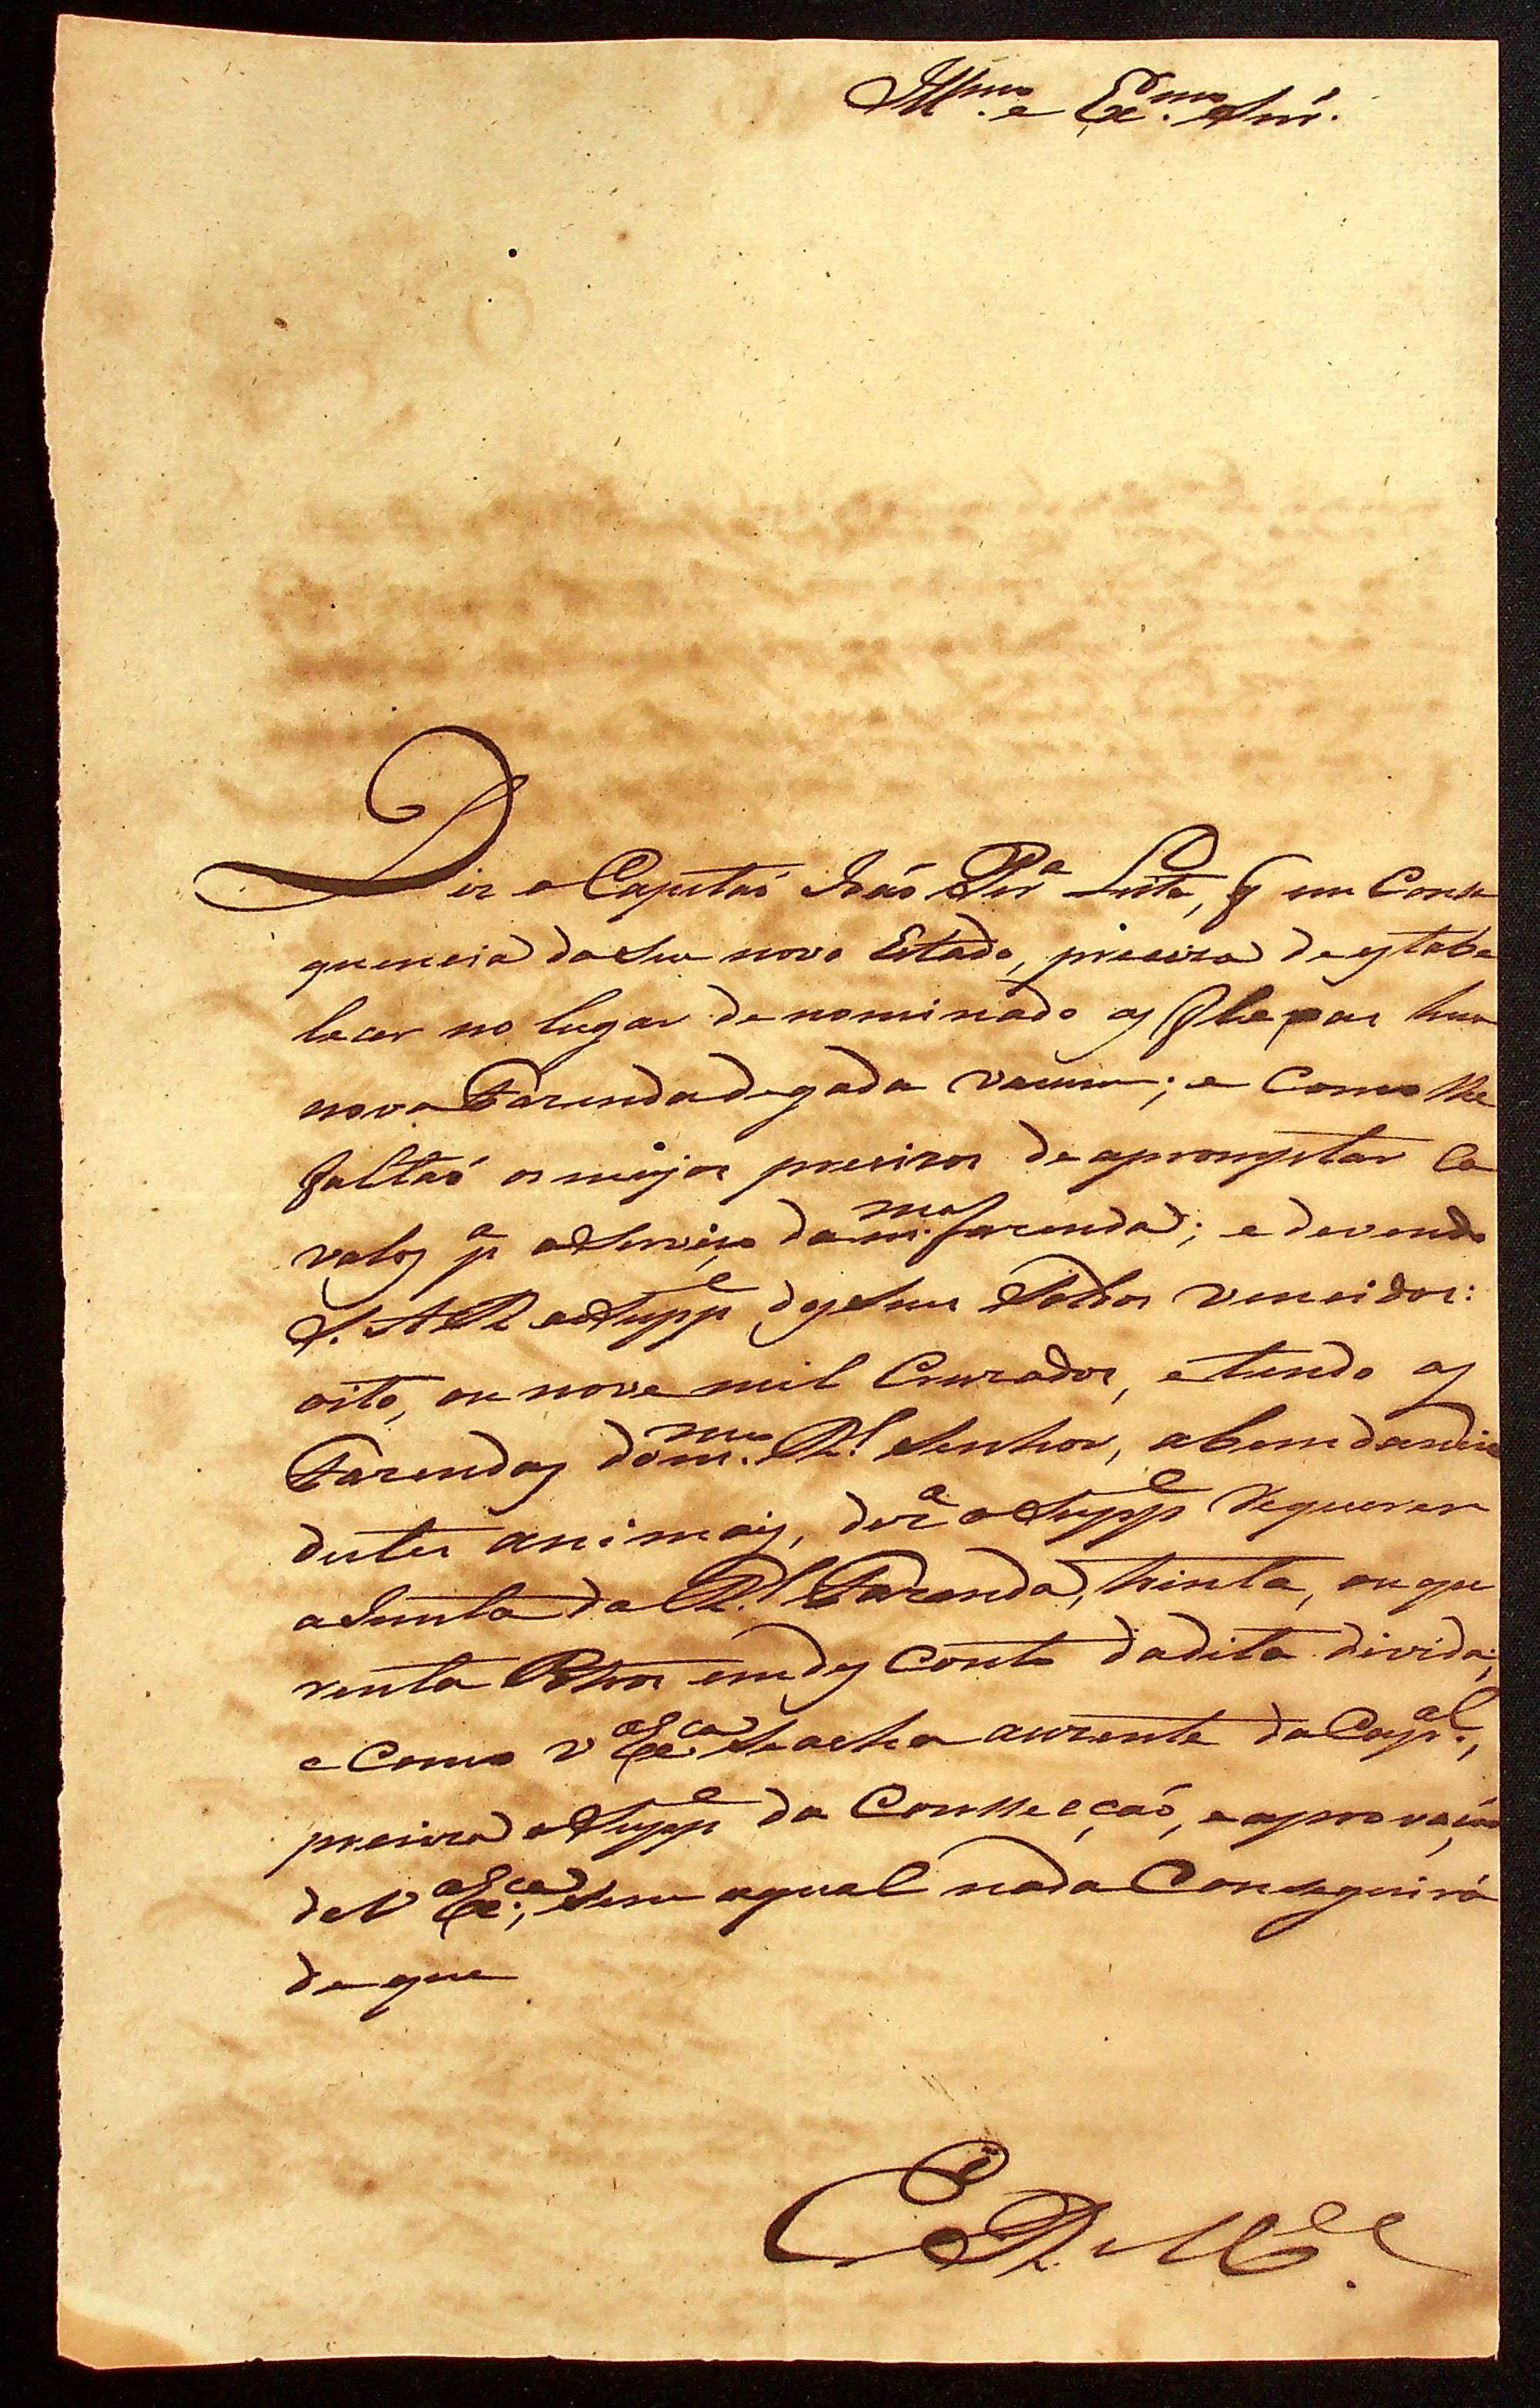 Ill.mo e Ex.mo Snr.
Diz o Capitaõ Joaõ Per.a Leite, q em Conse
quencia do Seu novo Estado, precisa de estabe
lecer no lugar denominado as hua
nova Fazenda de gado vacum; e como lhe
faltaõ os meijos precizos de apromptar Ca
valos p.a o Serviço da m.ma fazenda; e devendo
S. A R ao Supp.e de seus Soldos vencidos:
oito, ou nove mil Cruzados, e tendo as
Fazendas do m.mo R.l Senhor, abundancia
destes animais, dez.a o Supp.e Requerer
a Junta da R.l Fazenda, trinta, ou qua
renta Potros em desconto da dita divida;
e como V Ex.ca Se acha auzente da Cap.al,
preciza o Supp.e da Consecçaõ, e aprovaçaõ
de V Ex.ca, Sem aqual nada Conseguirá
de que
E R M.ce